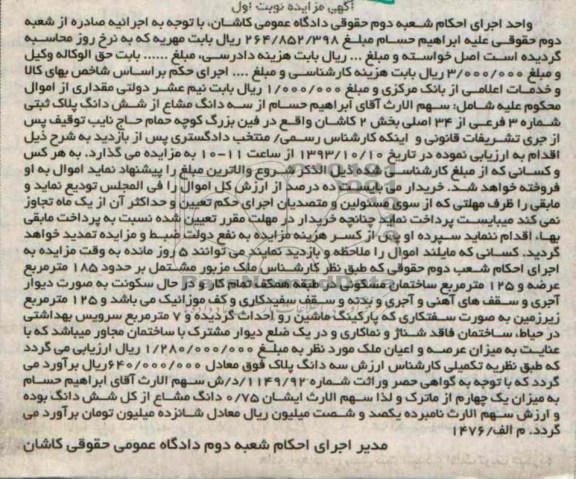 آگهی مزایده نوبت اول
واحد اجرای احکام شعبه دوم حقوقی دادگاه عمومی کاشان، با توجه به اجرائیه صادره از شعبه
دوم حقوقی علیه ابراهیم حسام مبلغ ۲۶۴/۸۵۲/۳۹۸ ریال بابت مهریه که به نرخ روز محاسبه
گردیده است اصل خواسته و مبلغ ... ریال بابت هزینه دادرسی، مبلغ ...... بابت حق الوکاله وکیل
و مبلغ ۳/۰۰۰/۰۰۰ ریال بابت هزینه کارشناسی و مبلغ .... اجرای حکم براساس شاخص بهای کالا
و خدمات اعلامی از بانک مرکزی و مبلغ ۱/۰۰۰/۰۰۰ ریال بابت نیم عشر دولتی مقداری از اموال
محکوم علیه شامل: سهم الارث آقای ابراهیم حسام از سه دانگ مشاع از شش دانگ پلاک ثبتی
شماره ۳ فرعی از ۳۴ اصلی بخش ۲ کاشان واقع در فین بزرگ کوچه حمام حاج نایب توقیف پس
از جری تشریفات قانونی و اینکه کارشناس رسمی/ منتخب دادگستری پس از بازدید به شرح ذیل
اقدام به ارزیابی نموده در تاریخ ۱۳۹۳/۱۰/۱۰ از ساعت ۱۱-۱۰ به مزایده می گذارد. به هر کس
و کسانی که از مبلغ کارشناسی شده ذیل الذکر شروع والاترین مبلغ را پیشنهاد نماید اموال به او
فروخته خواهد شد. خریدار می بایست ده درصد از ارزش کل اموال را فی المجلس تودیع نماید و
مابقی را ظرف مهلتی که از سوی مسئولین و متصدیان اجرای حکم تعیین و حداکثر آن از یک ماه تجاوز
نمی کند میبایست پرداخت نماید چنانچه خریدار در مهلت مقرر تعیین شده نسبت به پرداخت مابقی
بهاء اقدام ننماید سپرده او پس از کسر هزینه مزایده به نفع دولت ضبط و مزایده تمدید خواهد
گردید. کسانی که مایلند اموال را ملاحظه و بازدید نمایند می توانند ۵ روز مانده به وقت مزایده به
اجرای احکام شعب دوم حقوقی که طبق نظر کارشناس ملک مزبور مشتمل بر حدود ۱۸۵ مترمربع
عرصه و ۱۲۵ مترمربع ساختمان مسکونی در طبقه همکف تمام کار و در حال سکونت به صورت دیوار
آجری و سقف های آهنی و آجری و بدنه و سقف سفیدکاری و کف موزائیک می باشد و ۱۲۵ مترمربع
زیرزمین به صورت سفتکاری که پارکینگ ماشین رو احداث گردیده و ۷ مترمربع سرویس بهداشتی
در حیاط، ساختمان فاقد شناژ و نماکاری و در یک ضلع دیوار مشترک با ساختمان مجاور میباشد که با
عنایت به میزان عرصه و اعیان ملک مورد نظر به مبلغ ۱/۲۸۰/۰۰۰/۰۰۰ ریال ارزیابی می گردد
که طبق نظریه تکمیلی کارشناس ارزش سه دانگ پلاک فوق معادل ۶۴۰/۰۰۰/۰۰۰ریال برآورد می
گردد که با توجه به گواهی حصر وراثت شماره ۱۱۴۹/۹۲/د/ش سهم الارث آقای ابراهیم حسام
به میزان یک چهارم از ماترک و لذا سهم الارث ایشان ۰/۷۵ دانگ مشاع از کل شش دانگ بوده
و ارزش سهم الارث نامبرده یکصد و شصت میلیون ریال معادل شانزده میلیون تومان برآورد می
گردد. م الف/۱۴۷۶
مدیر اجرای احکام شعبه دوم دادگاه عمومی حقوقی کاشان